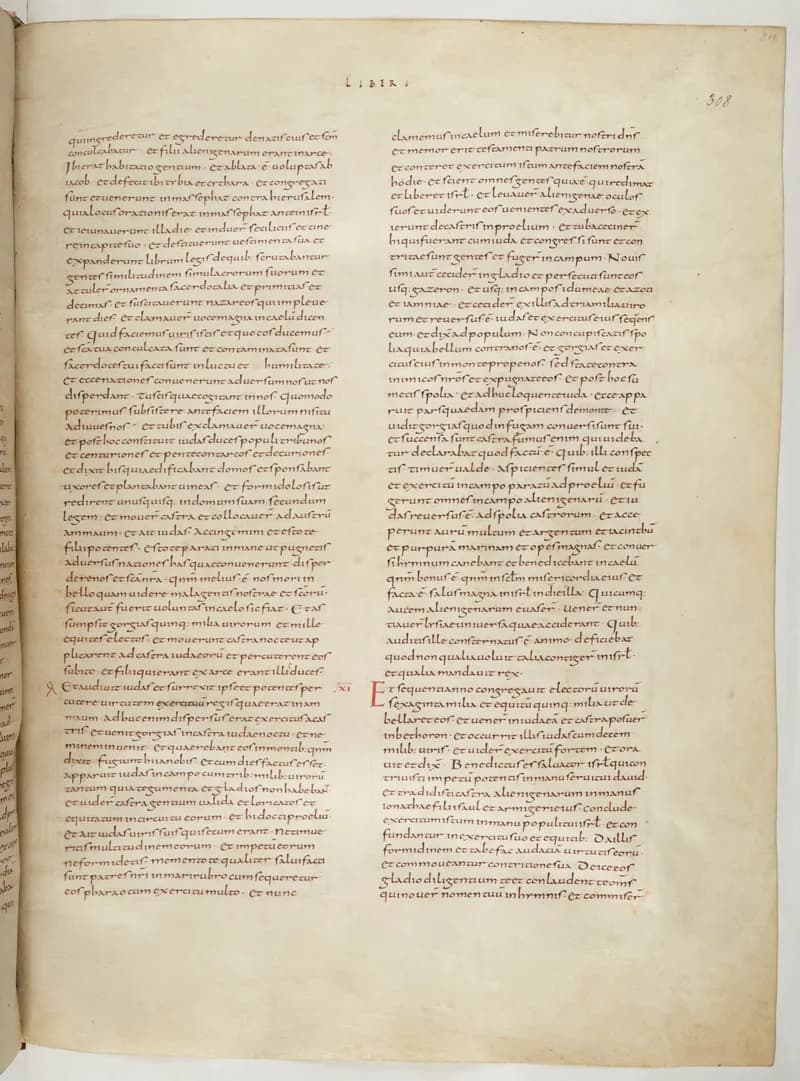 LIBER I
308
quiingrederetur et egrederetur denatiseius etscm̄
conculcabatur et filii alienigenarum erantinarce
Ibierat habitatio gentium · etablata ē uoluptasab
iacob · etdefecit ibi tibia et cithara · et congregati
sunt etuenerunt inmasephat contrahierusalem ·
quialocusorationiserat inmasephat anteinisrł
etieiunauerunt illadie · et induer̄ seciliciis et cine
reincapitesuo · etdesciderunt uestimenta sua et
expanderunt librum legis dequib; scrutabantur
gentes similitudinem simulacrorum suorum et
attuler̄ ornamenta sacerdotalia etprimitias et
decimas · et suscitauerunt nazareos quiimpleue
rant dies · et clamauer̄ uocemagna incaelū dicen
tes quid faciemus istis et quo eosducemus ·
et sancta conculcata sunt et contaminata sunt et
sacerdotestui facti sunt inluctu et humilitate ·
et eccenationes conuenerunt aduersum nos ut nos
disperdant · tuscis quaecogitant innos quomodo
poterimus subsistere antefaciem illorum nisi tu
adiuuesnos · et tubis exclamauer̄ uocemagna
et posthoc constituit iudas duces populi tribunos
et centuriones et pentecontarcos etdecuriones
et dixit his quiaedificabant domos et sponsabant
uxores et plantabant uineas · et formidolosis ut
redirent unusquisq; indomum suam secundum
legem · et mouer̄ castra et collocauer̄ adaustrū
ammaum · et ait iudas accingimini et estote
filii potentes · estote parati inmane ut pugnetis
aduersus nationes has quaeconuenerunt disper
derenos et scanr̄a · qnm̄ melius ē nos mori in
bello quam uidere mala gentis nostrae et scorū ·
sicut aut̄ fuerit uoluntas incaelo sic fiat · Et as
sumpsit gorgias quinq; milia uirorum et mille
equites electos et mouerunt castra nocte ut ap
plicarent adcastra iudaeorū et percuterent eos
subito et filii quierant exarce erant illi duces
Et audiuit iudas et surrexit ipse et potentes per
cutere uirtutem exercituū regis quaeerat inam
maum · adhuc enim dispersus erat exercitus acas
tris et uenit gorgias incastra iudaenoctu · et ne
minem inuenit et quaerebat eos in montib; qnm̄
dixit fugiunt hi anobis et cum dies factus esset
apparuit iudas incampo cum trib; milib; uirorū
tantum quia tegumenta et gladios non habebant
et uider̄ castra gentium ualida et loricatos et
equitatum incircuitu eorum et hi docti ad proeliū
et ait iudas uiris suis qui secum erant · ne timue
ritis multitudinem eorum et impetū eorum
ne formidetis · mementote qualiter salui facti
sunt patres nr̄i in mari rubro cum sequeretur
eos pharao cum exercitu multo · et nunc
clamemus incaelum et miserebitur nostri dn̄s
et memor erit testamenti patrum nostrorum
et conteret exercitum istum antefaciem nostrā
hodie · et scient omnes gentes quia ē qui redimat
et liberet isrł · et leuauer̄ alienigenae oculos
suos et uiderunt eos uenientes exaduerso · et ex
ierunt decastris inproelium · et tubacecinerˉ
hi qui fuerant cum iuda et congressi sunt et con
tritae sunt gentes et fuger̄ incampum · Nouis
simi aut̄ ceciderˉ in gladio et persecuti sunt eos
usq; gazeron · et usq; incampos idumeae et azoti
et iamniae · et cecider̄ exillis ad triamilia uiro
rum et reuersus ē iudas et exercitus eius sequens
eum et dix̄ adpopulum · Non concupiscatis spo
lia quia bellum contra nos ē · et gorgias et exer
citus eius inmonte prope nos · sed state contra
inimicos nr̄os et expugnate eos et post hoc su
metis spolia · et adhuc loquente iuda · ecce appa
ruit pars quaedam prospiciens demonte · et
uidit gorgias quod infugam conuersi sunt sui ·
et succensa sunt castra fumus enim qui uideba
tur declarabat quod factū ē · quib; illi conspec
tis timuer̄ ualde · aspicientes simul et iudā
et exercitū incampo paratū ad proeliū et fu
gerunt omnes incampo alienigenarū · et iu
das reuersus ē ad spolia castrorum · et acce
perunt aurū multum et argentum et iacinthū
et purpurā marinam et opes magnas · et conuer
si hymnum canebant et benedicebant incaelū
qnm̄ bonus ē qnm̄ inscłm misericordia eius et
facta ē salus magna inisrł in die illa · Quicumq;
autem alienigenarum euaser̄ · uener̄ et nun
tiauer̄ lysiae uniuersa quae acciderant · quib;
auditis ille consternatus ē animo deficiebat
quod non qualia uoluit talia contiger̄ in isrł ·
et qualia mandauit rex ·
XI
Et sequenti anno congregauit electorū uirorū
sexaginta milia et equitū quinq; milia ut de
bellaret eos · et uener̄ iniudaeā et castra posuer̄
inbethoron · et occurrit illis iudas cum decem
milib; uiris · et uider̄ exercitū fortem · et ora
uit et dix̄ · Benedictus es saluator isrł qui con
triuisti impetū potentis in manu serui tui dauid ·
et tradidisti castra alienigenarum in manus
ionathae filii saul et armigeri eius conclude
exercitum istum in manu populi tui isrł · et con
fundantur in exercitu suo et equitib; Da illis
formidinem et tabefac audacia uirtutis eorū ·
et commoueantur contritione sua Deice eos
gladio diligentium te et conlaudent te oms̄
qui nouer̄ nomen tuū in hymnis · et commiser̄